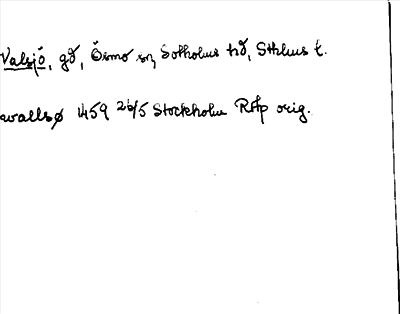 Valsjö, gd, Ösmo sn, Sotholms hd, Sthlms l.
wallsø 1459 26/5 Stockholm RAp orig.